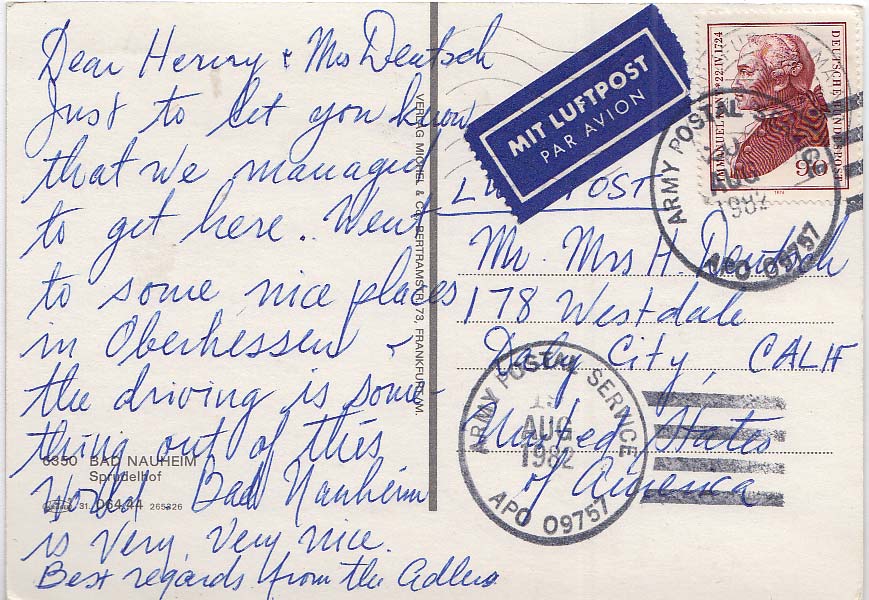 Dear Henry & Mrs Deutsch
Just to let you know
that we managed
to get here. Went
to some nice places
in Oberhessen -
the driving is some-
thing out of this
World Bad Nauheim
is very, very nice.
Best regards from the Adlers
6350 BAD NAUHEIM
Sprudelhof
31. 064.44 265326
VERLAG MICHEL & CO., BERTRAMSTR. 73, FRANKFURT/M.
MIT LUFTPOST
PAR AVION
POST
Mr. Mrs H. Deutsch
178 Westdale
Daly City, CALIF
United States
of America
IMMANUEL KANT * 22.IV.1724
DEUTSCHE BUNDESPOST
90
1974
ARMY POSTAL
AUG
1982
APO 09757
ARMY POSTAL SERVICE
19
AUG
1982
APO 09757